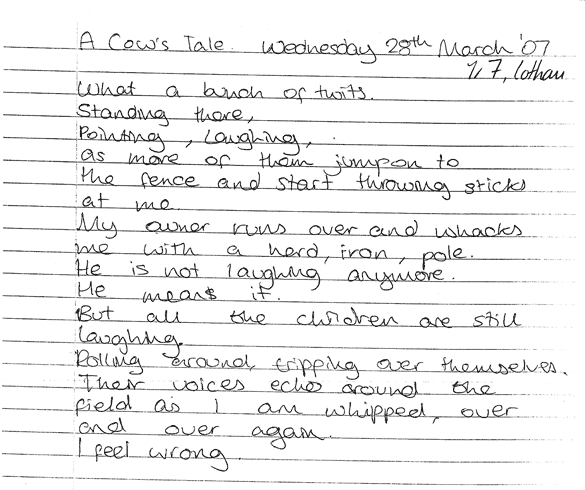 A Cow's Tale. Wednesday 28th March '07
What a bunch of twits.
Standing there,
Pointing, Laughing,
as more of them jumpon to
the fence and start throwing sticks
at me.
My owner runs over and whacks
me with a hard, iron, pole.
He is not laughing anymore.
He means it.
But all the children are still
laughing.
Rolling around, tripping over themselves.
Their voices echo around the
field as I am whipped, over
and over again.
I feel wrong.